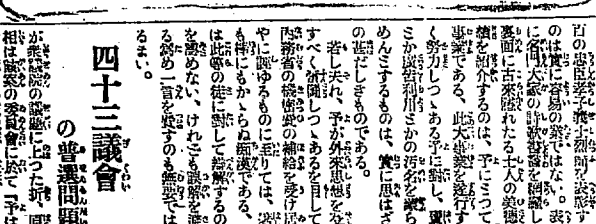 百の忠臣孝子義士烈婦を表彰す
のは實に容易の業ではない。表
に名門大家の詩歌書畫を網羅し
裏面に古來隱れたる士人の美德
績を紹介するのは、予にとつて
事業である、此大事業を遂行す
く努力しつゝある予に對し、
とか廣告利用とかの汚名を蒙ら
めんとするものは、實に思はざ
の甚だしきものである。
若し夫れ、予が外來思想を
すべく奮鬪しつゝあるを目して
內務省の機密費の補給を受け居
やに疑ゆるものに至りては、
も棒にもかゝらぬ痴漢である、
は此等の徒に對して辯解するの
を認めない、けれども誤解を
る爲め一言を費すのも無駄では
るまい。
四十三議會
の普選問題
が衆議院の議題に上つた折、原
相は豫算の委員會に於て「予は